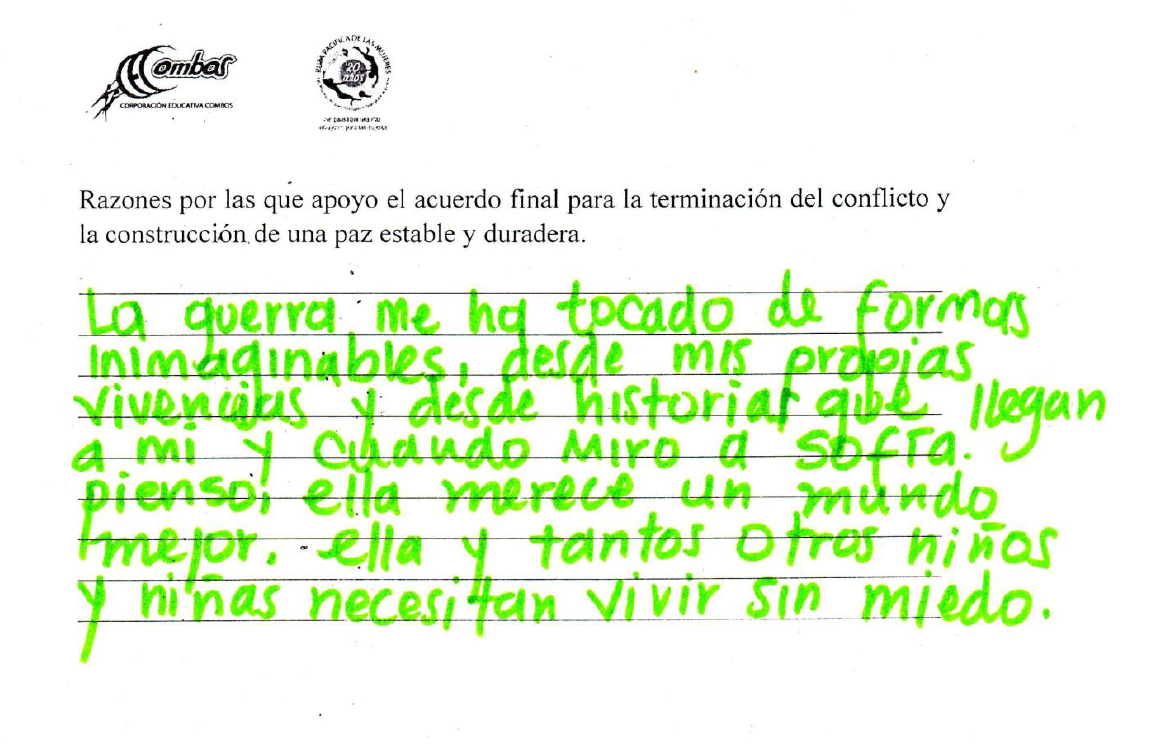 Combos
CORPORACIÓN EDUCATIVA COMBOS
RUTA PACIFICA DE LAS MUJERES
20
AÑOS
Razones por las que apoyo el acuerdo final para la terminación del conflicto y
la construcción de una paz estable y duradera.
La guerra me ha tocado de formas
inimaginables, desde mis propias
vivencias y desde historias que llegan
a mi y cuando miro a sofía.
pienso, ella merece un mundo
mejor. ella y tantos otros niños
y niñas necesitan vivir sin miedo.